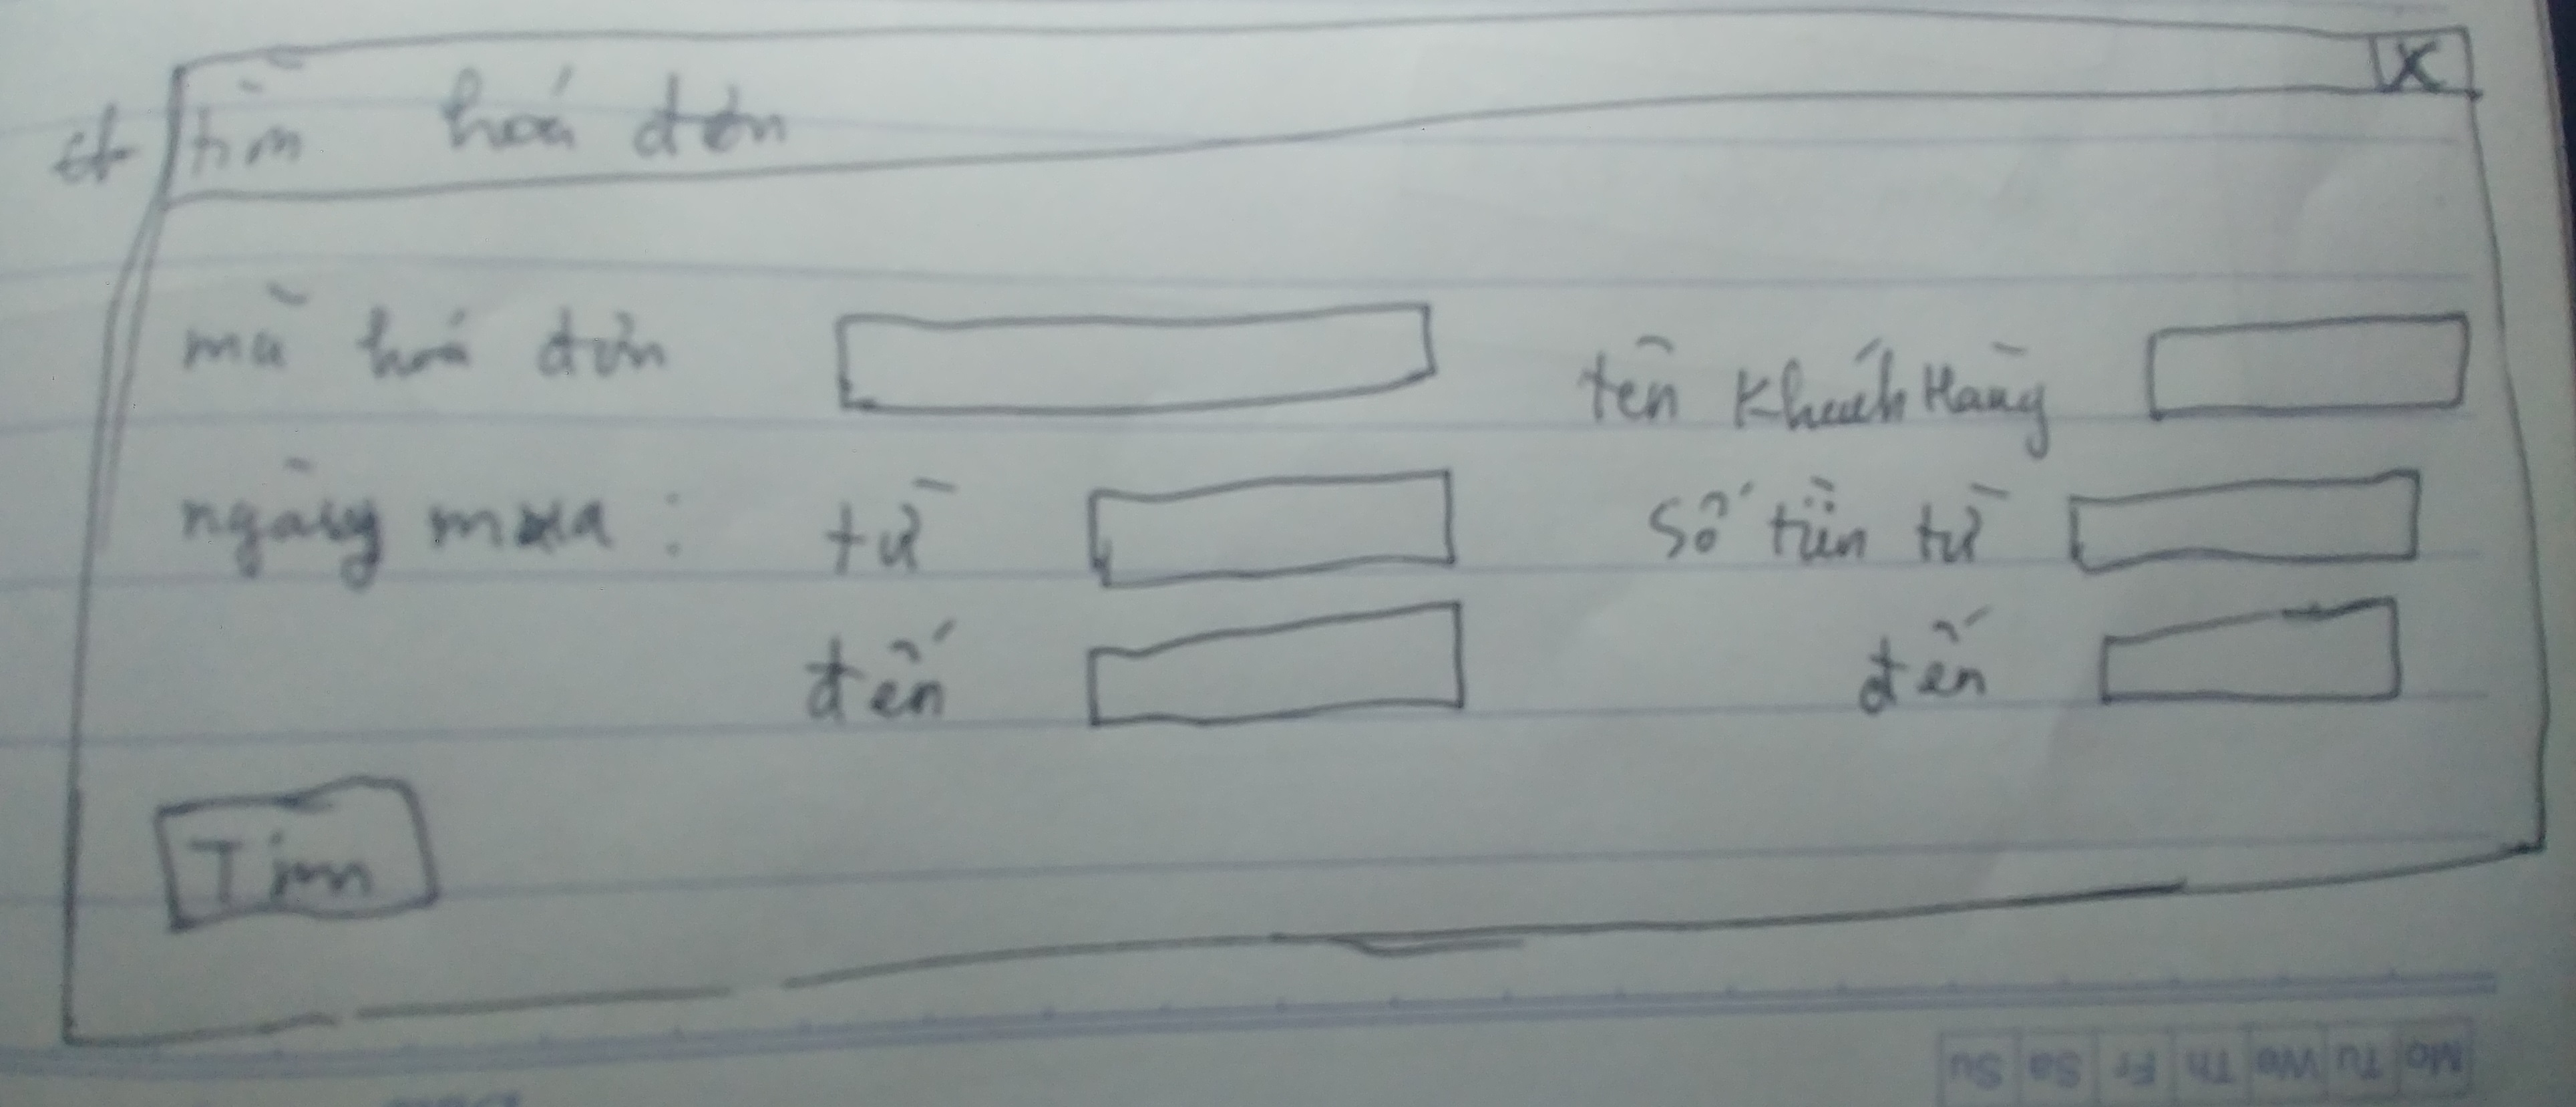 tìm hoá đơn X
mã hoá đơn tên Khách Hàng
ngày mua : từ số tiền từ
đến đến
Tìm
Mo Tu We Th Fr Sa Su